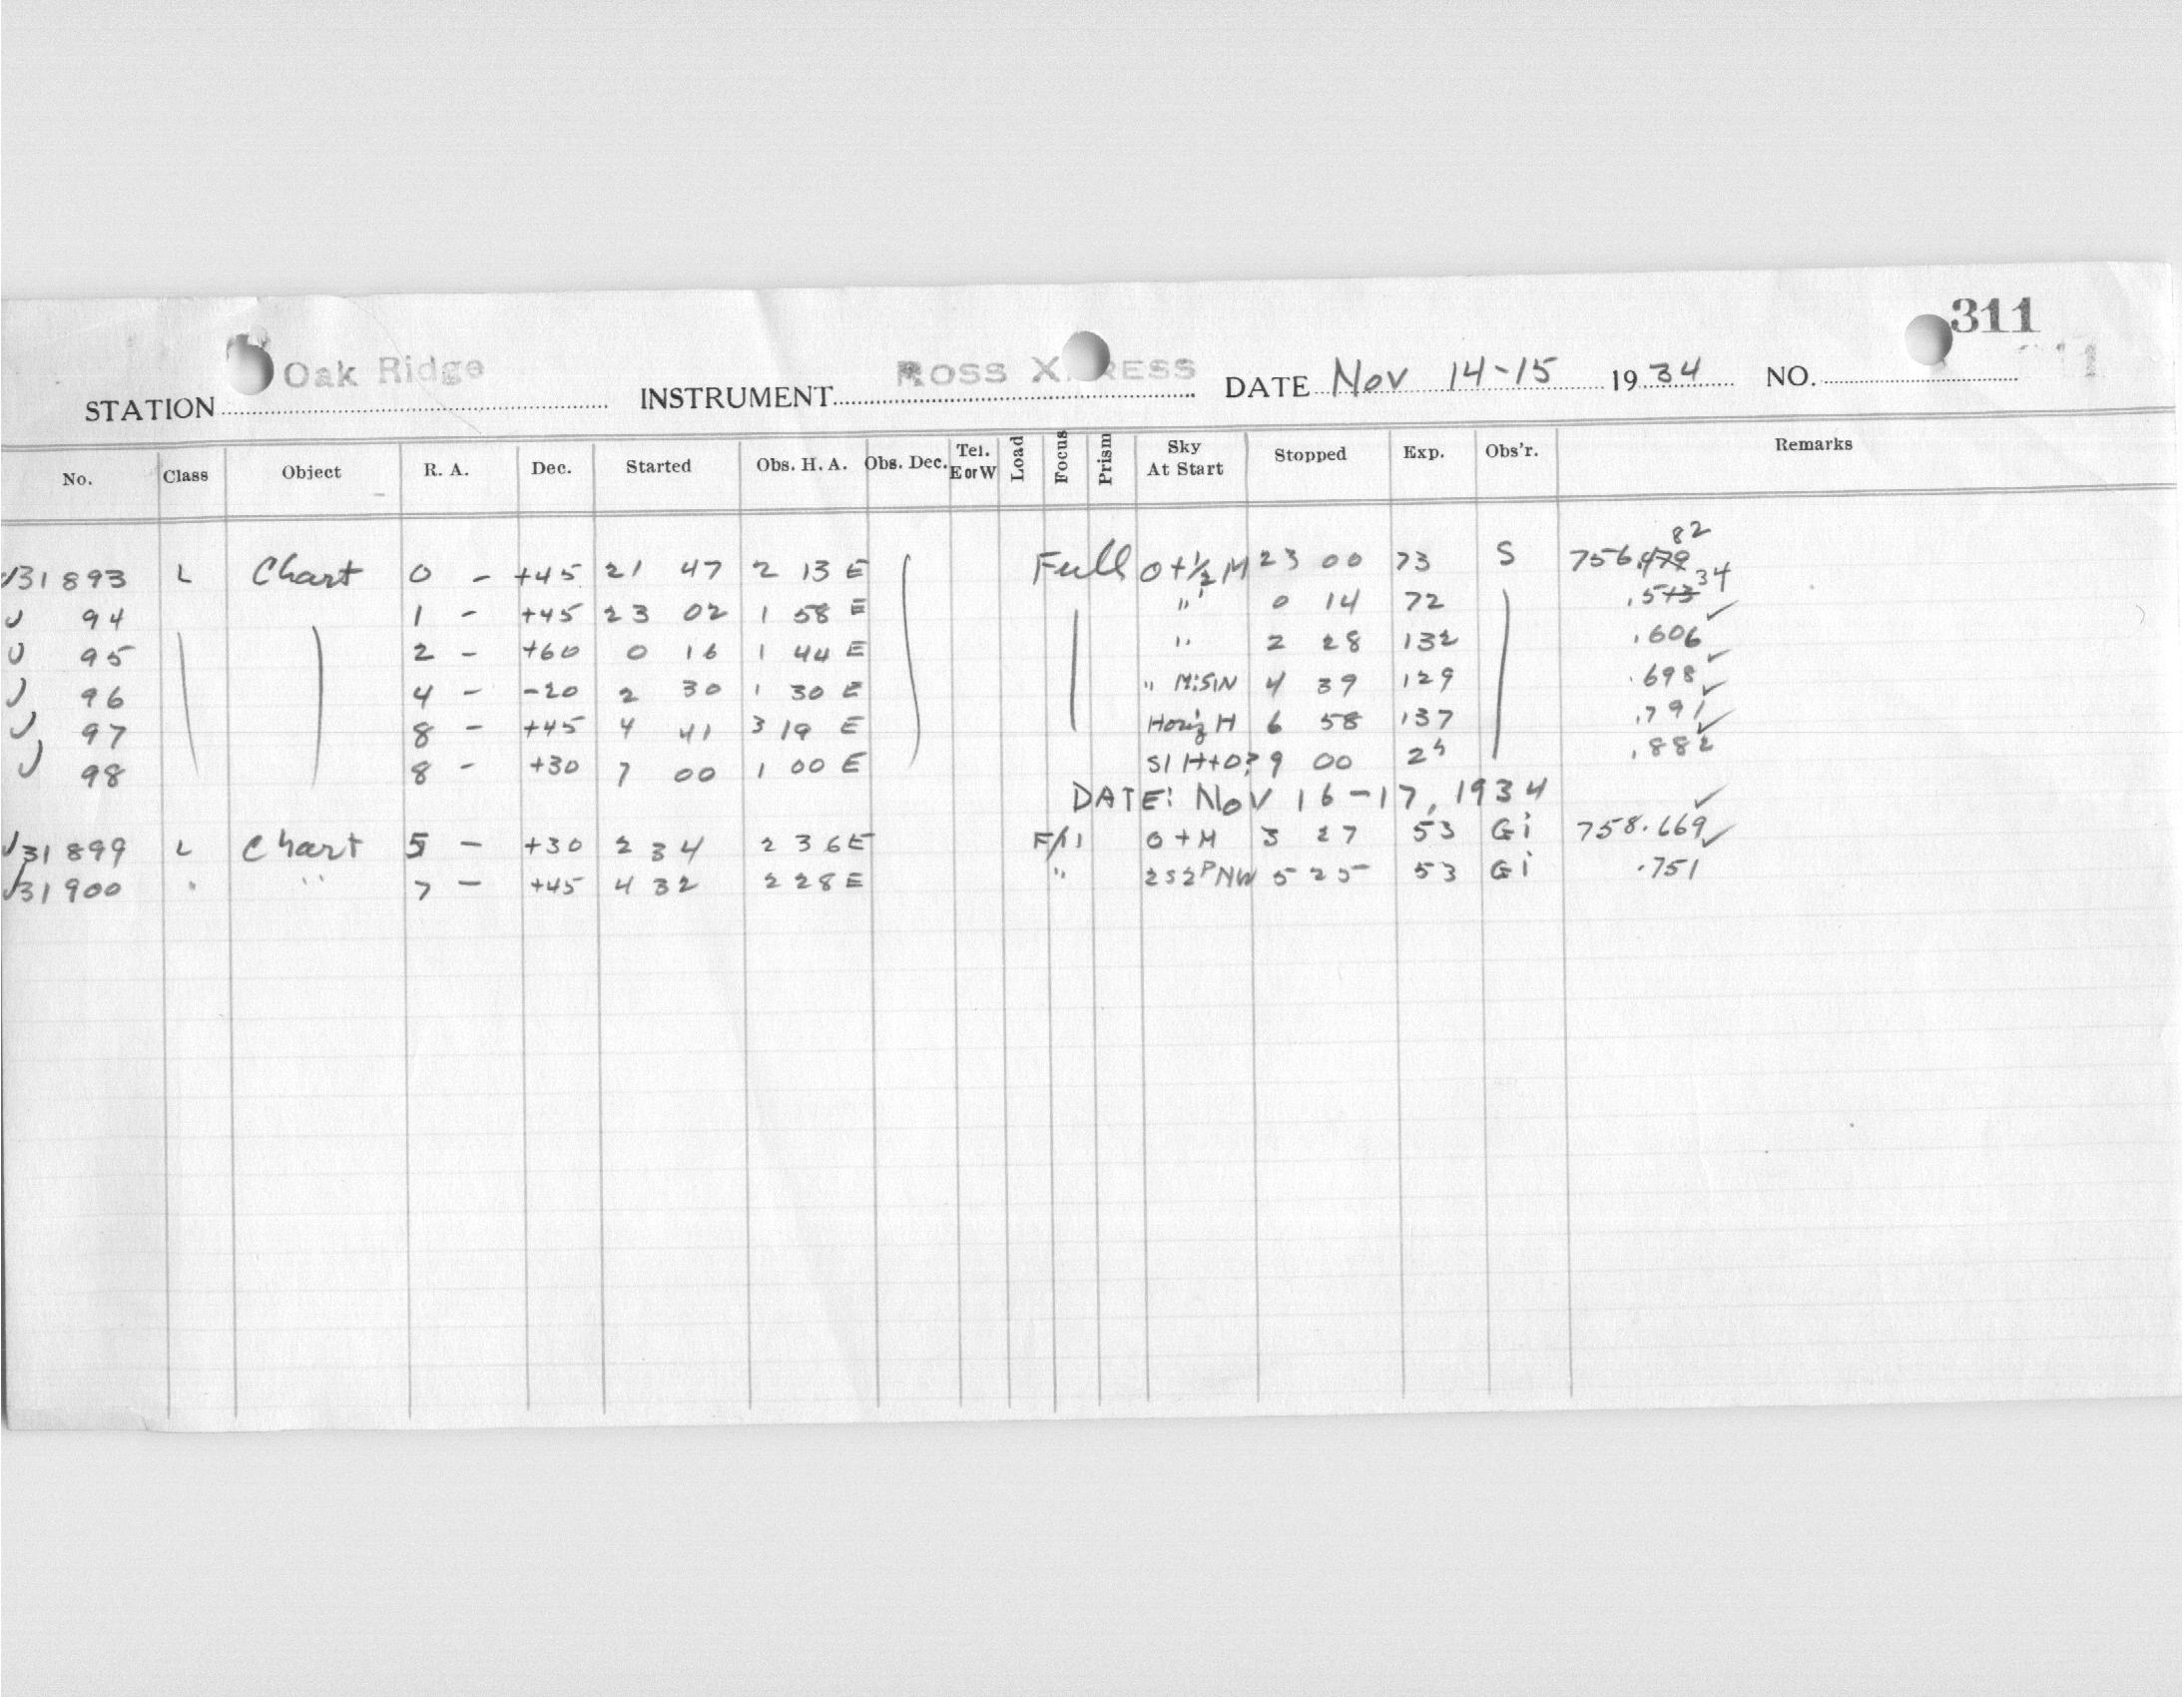 311
STATION Oak Ridge INSTRUMENT ROSS X RESS DATE Nov 14-15 1934 NO.
No. Class Object R. A. Dec. Started Obs. H. A. Obs. Dec. Tel. E or W Load Focus Prism Sky At Start Stopped Exp. Obs'r. Remarks
82
31893 L Chart 0 - +45 21 47 2 13 E Full 0+½M 23 00 73 S 756.479
34
94 1 - +45 23 02 1 58 E " 0 14 72 .513
95 2 - +60 0 16 1 44 E " 2 28 132 .606
96 4 - -20 2 30 1 30 E " MiSiN 4 39 129 .698
97 8 - +45 4 41 3 19 E Horiz H 6 58 137 .791
98 8 - +30 7 00 1 00 E Sl H+0? 9 00 2h .882
DATE: Nov 16-17, 1934
31899 L Chart 5 - +30 2 34 2 36 E F/11 0+M 3 27 53 Gi 758.669
31900 " " 7 - +45 4 32 2 28 E " 2S2PNW 5 25 53 Gi .751